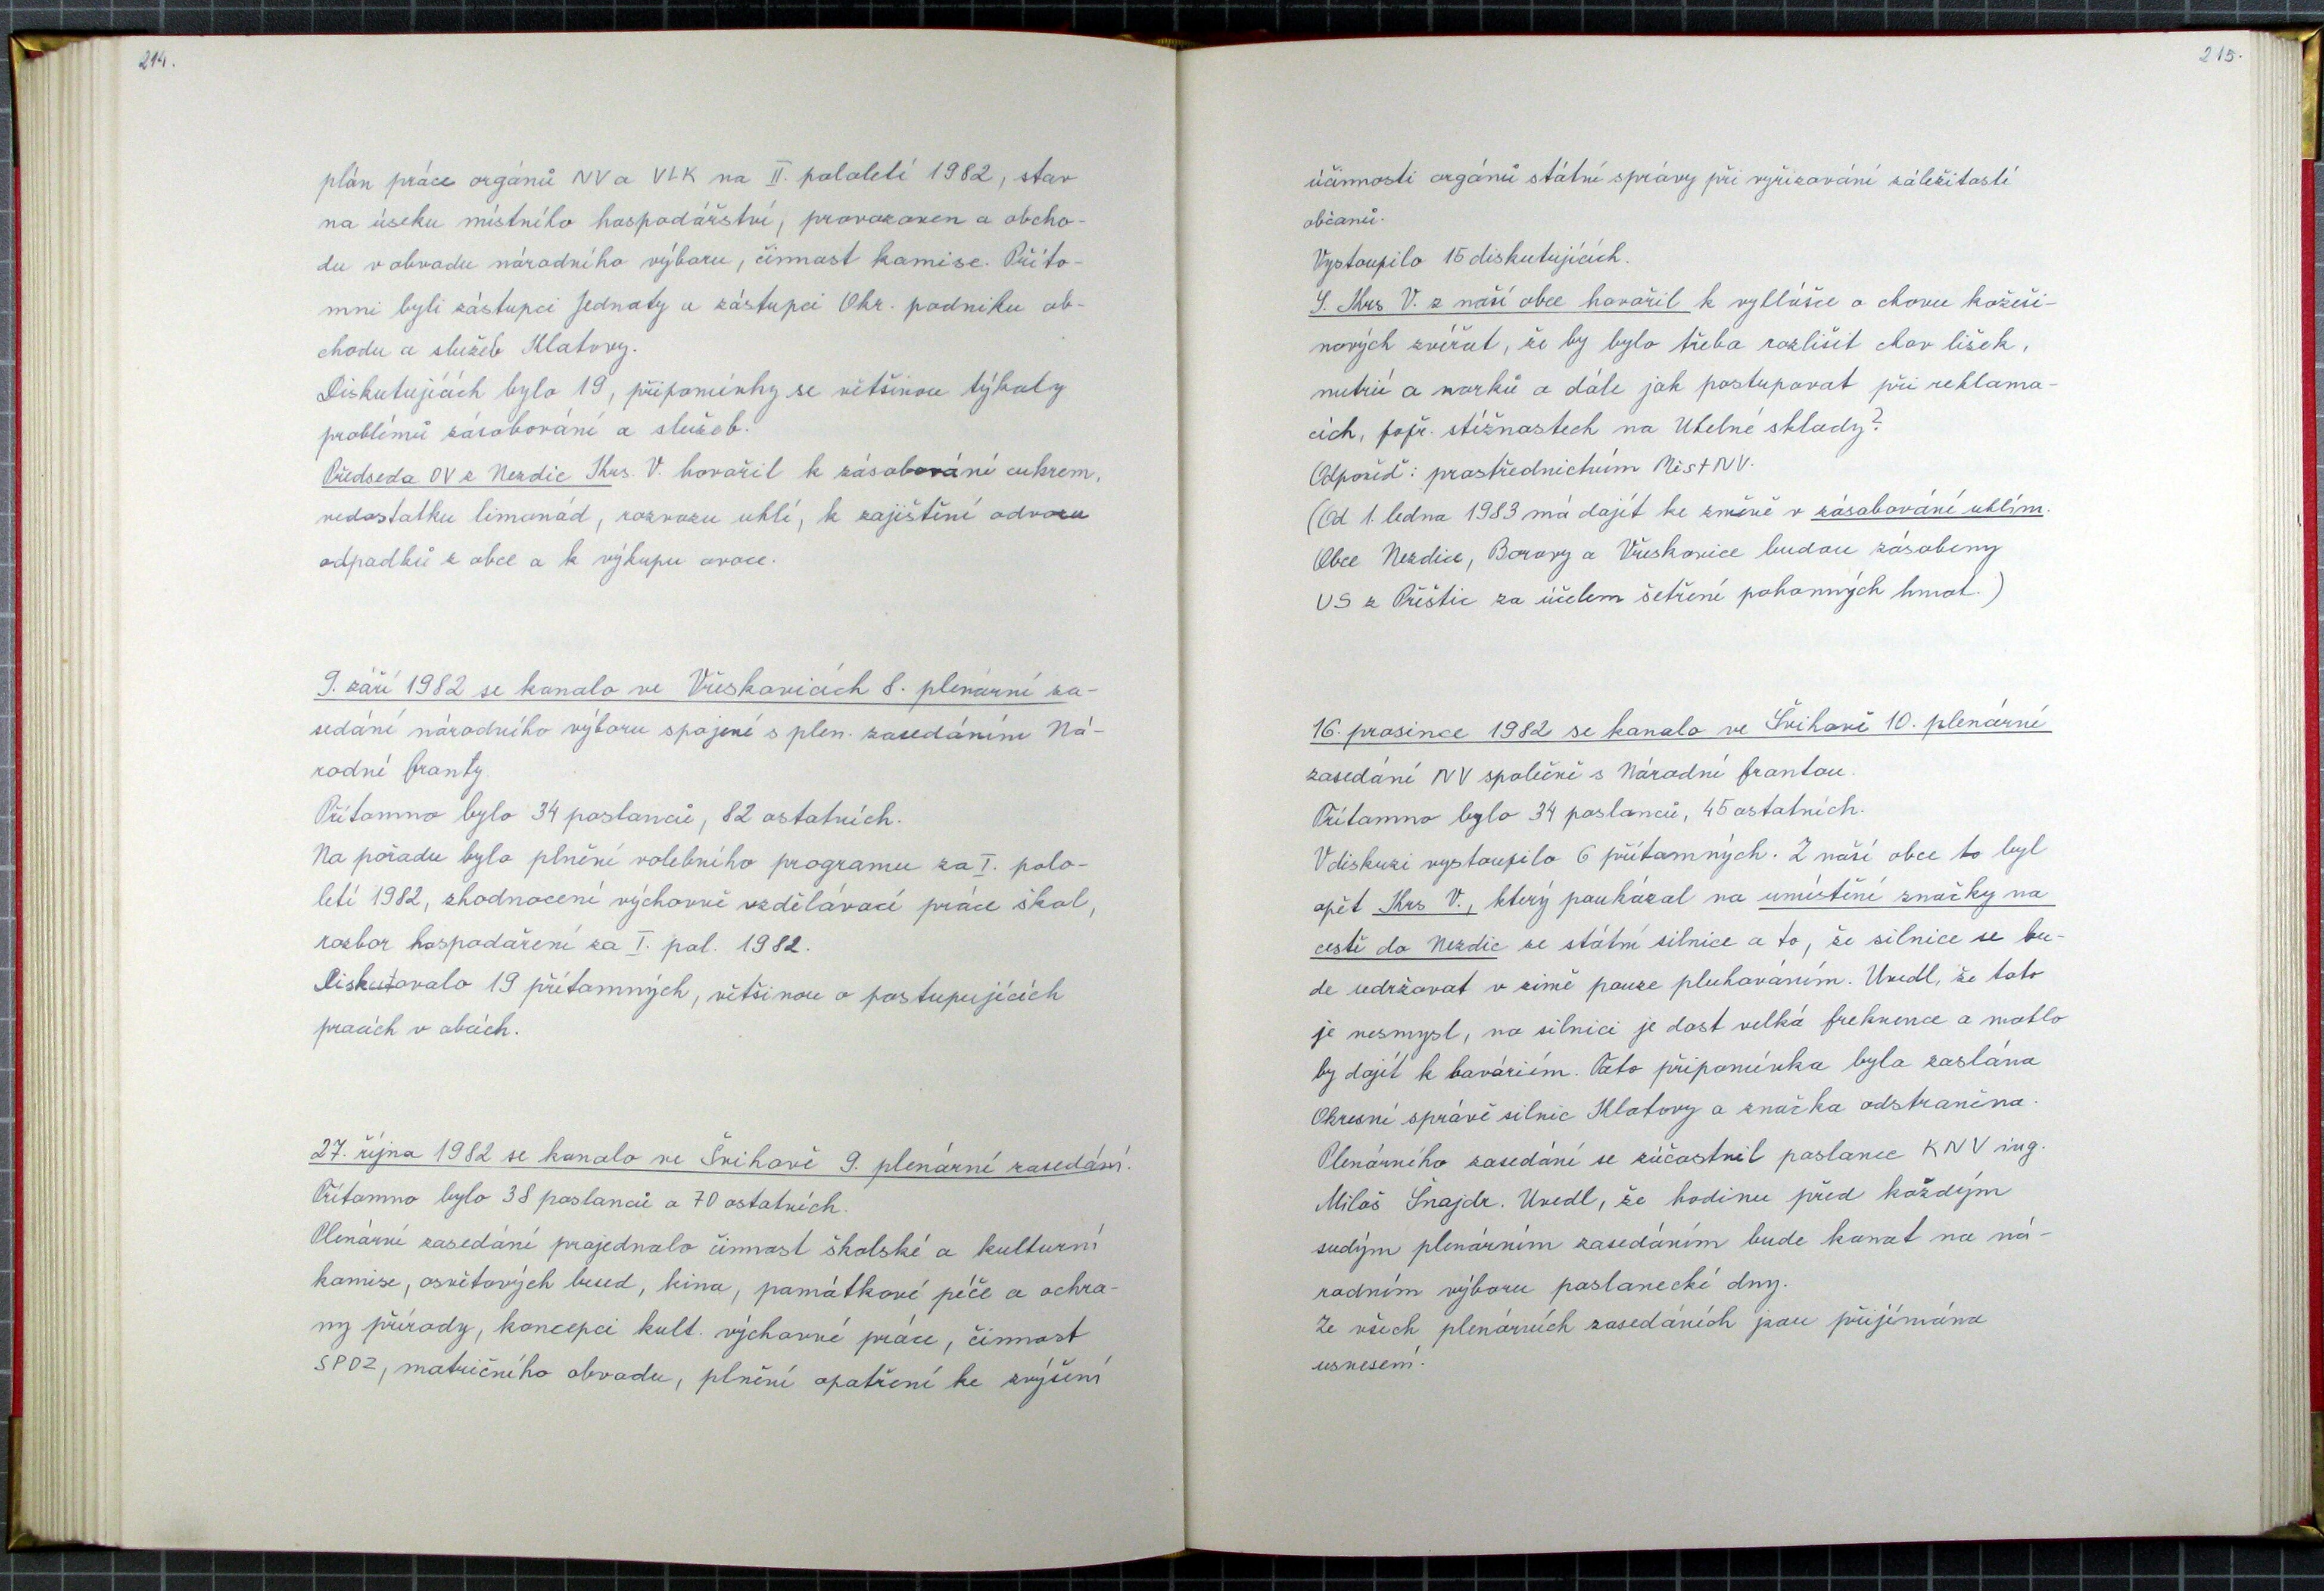 214.
plán práce orgánů NV a VLK na II. pololetí 1982, stav
na úseku místního hospodářství, provozoven a obcho-
du v obvodu národního výboru, činnost komise. Příto-
mni byli zástupci Jednoty a zástupci Okr. podniku ob-
chodu a služeb Klatovy.
Diskutujících bylo 19, připomínky se většinou týkaly
problémů zásobování a služeb.
Předseda OV z Nezdic Krs. V. hovořil k zásobování cukrem,
nedostatku limonád, rozvozu uhlí, k zajištění odvozu
odpadků z obce a k výkupu ovoce.
9. září 1982 se konalo ve Vřeskovicích 8. plenární za-
sedání národního výboru spojené s plen. zasedáním Ná-
rodní fronty.
Přítomno bylo 34 poslanců, 82 ostatních.
Na pořadu bylo plnění volebního programu za I. polo-
letí 1982, zhodnocení výchovně vzdělávací práce škol,
rozbor hospodaření za I. pol. 1982.
Diskutovalo 19 přítomných, většinou o postupujících
pracích v obcích.
27. října 1982 se konalo ve Švihově 9. plenární zasedání.
Přítomno bylo 38 poslanců a 70 ostatních.
Plenární zasedání projednalo činnost školské a kulturní
komise, osvětových besed, kina, památkové péče a ochra-
ny přírody, koncepci kult. výchovné práce, činnost
SPOZ, matričního obvodu, plnění opatření ke zvýšení
215.
účinnosti orgánů státní správy při vyřizování záležitostí
občanů.
Vystoupilo 15 diskutujících.
S. Krs V. z naší obce hovořil k vyhlášce o chovu kožeši-
nových zvířat, že by bylo třeba rozlišit chov lišek,
nutrií a norků a dále jak postupovat při reklama-
cích, popř. stížnostech na Uhelné sklady?
Odpověď: prostřednictvím MěstNV.
(Od 1. ledna 1983 má dojít ke změně v zásobování uhlím.
Obce Nezdice, Borovy a Vřeskovice budou zásobeny
US z Přeštic za účelem šetření pohonných hmot.)
16. prosince 1982 se konalo ve Švihově 10. plenární
zasedání NV společně s Národní frontou.
Přítomno bylo 34 poslanců, 45 ostatních.
V diskuzi vystoupilo 6 přítomných. Z naší obce to byl
opět Krs V., který poukázal na umístění značky na
cestě do Nezdic ze státní silnice a to, že silnice se bu-
de udržovat v zimě pouze pluhováním. Uvedl, že toto
je nesmysl, na silnici je dost velká frekvence a mohlo
by dojít k haváriím. Tato připomínka byla zaslána
Okresní správě silnic Klatovy a značka odstraněna.
Plenárního zasedání se zúčastnil poslanec KNV ing.
Miloš Šnajdr. Uvedl, že hodinu před každým
sudým plenárním zasedáním bude konat na ná-
rodním výboru poslanecké dny.
Ze všech plenárních zasedáních jsou přijímána
usnesení.